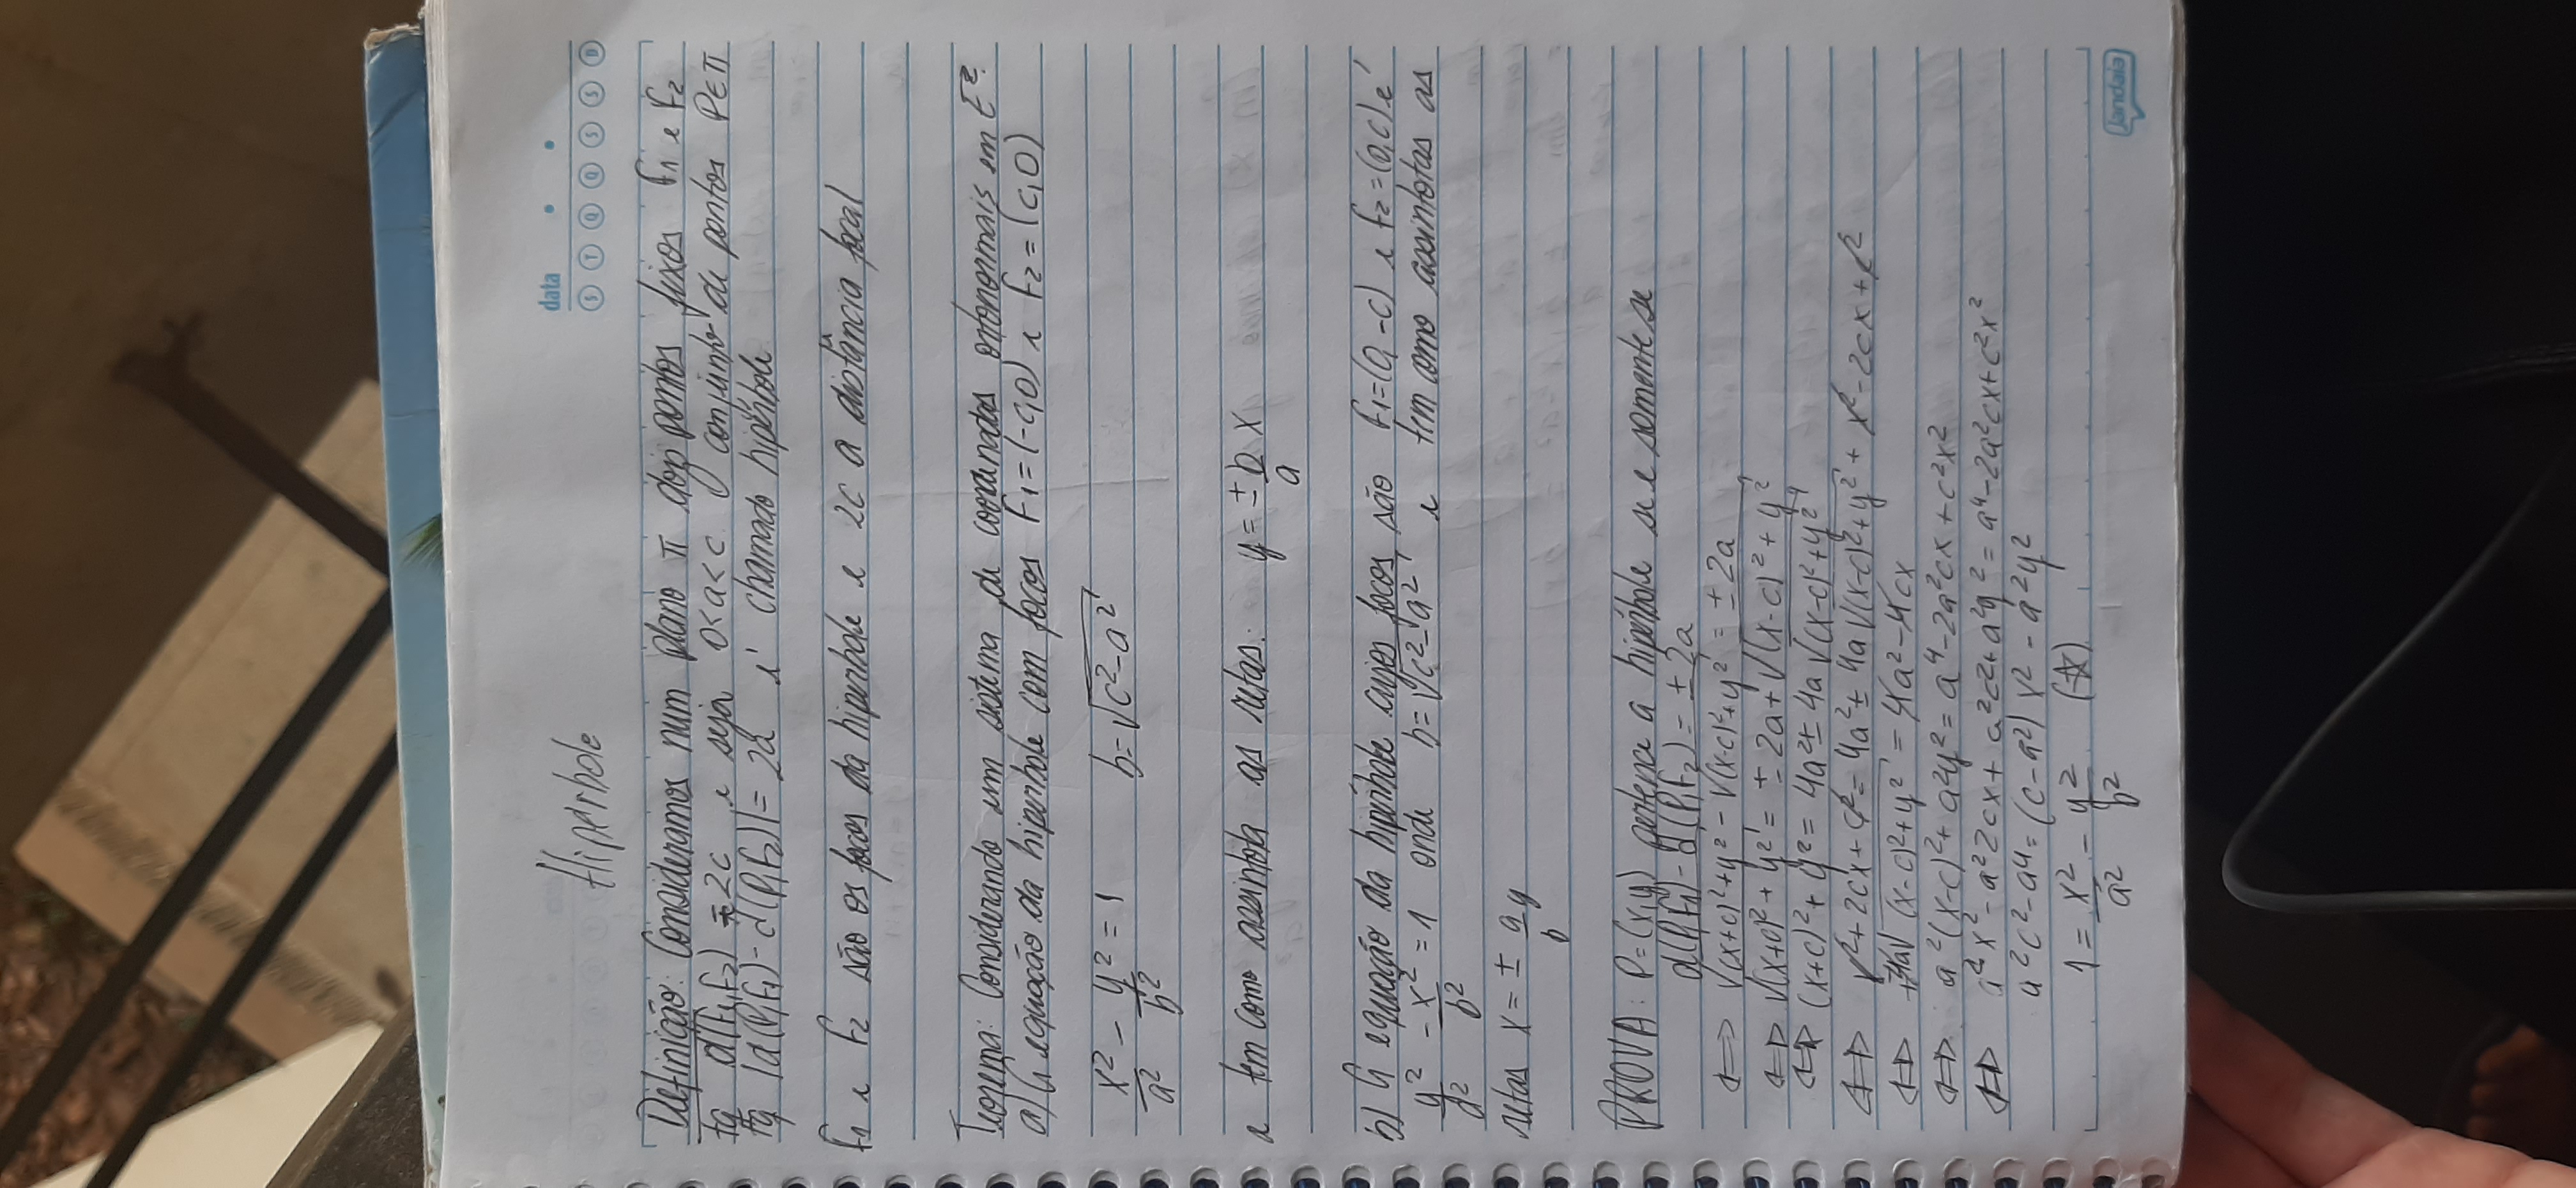 Hipérbole
data
S T Q Q S S D
Definição: Consideramos num plano π dois pontos fixos F1 e F2
tq d(F1,F2) = 2c e seja 0<a<c. O conjunto de pontos P∈π
tq |d(P,F1) - d(P,F2)| = 2a é chamado hipérbole
F1 e F2 são os focos da hipérbole e 2c a distância focal
Teorema: Considerando um sistema de coordenadas ortonormais em E².
a) A equação da hipérbole com focos F1=(-c,0) e F2=(c,0)
x²/a² - y²/b² = 1 b=√(c²-a²)
e tem como assintota as retas: y = ± b/a x
b) A equação da hipérbole cujos focos são F1=(0,-c) e F2=(0,c) é
y²/a² - x²/b² = 1 onde b=√(c²-a²) e tem como assintotas as
retas x = ± a/b y
PROVA: P=(x,y) pertence a hipérbole se e somente se
d(P,F1) - d(P,F2) = ±2a
⇔ √((x+c)²+y²) - √((x-c)²+y²) = ±2a
⇔ √((x+c)²+y²) = ±2a+√((x-c)²+y²)
⇔ (x+c)²+y² = 4a² ± 4a √((x-c)²+y²)
⇔ x²+2cx+c² = 4a² ± 4a √((x-c)²+y²) + x²-2cx+c²
⇔ ±4a√((x-c)²+y²) = 4a²-4cx
⇔ a²(x-c)²+a²y² = a⁴-2a²cx+c²x²
⇔ a²x²-a²2cx+a²c²+a²y² = a⁴-2a²cx+c²x²
a²c²-a⁴ = (c-a²) x² - a²y²
1 = x²/a² - y²/b² (☆)
jandaia